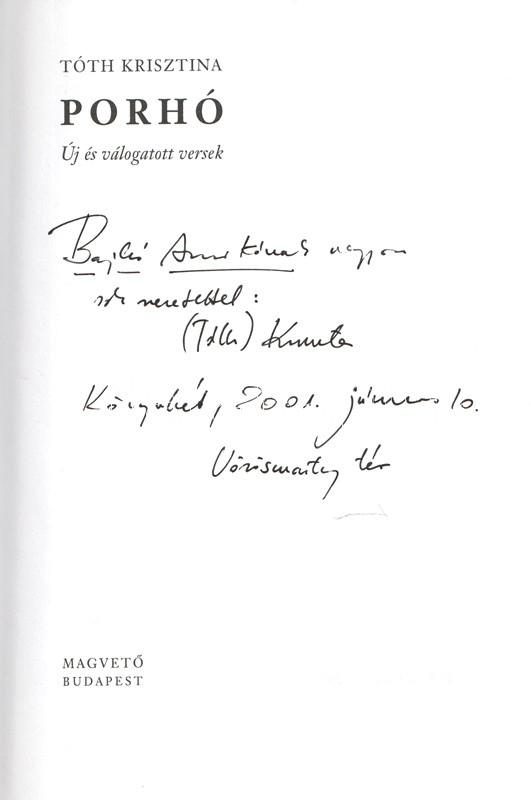 TÓTH KRISZTINA
PORHÓ
Új és válogatott versek
Annikónak nagyon
sok szeretettel:
(Tóth) Kriszta
Könyvhét, 2001. június 10.
Vörösmarty tér
MAGVETŐ
BUDAPEST